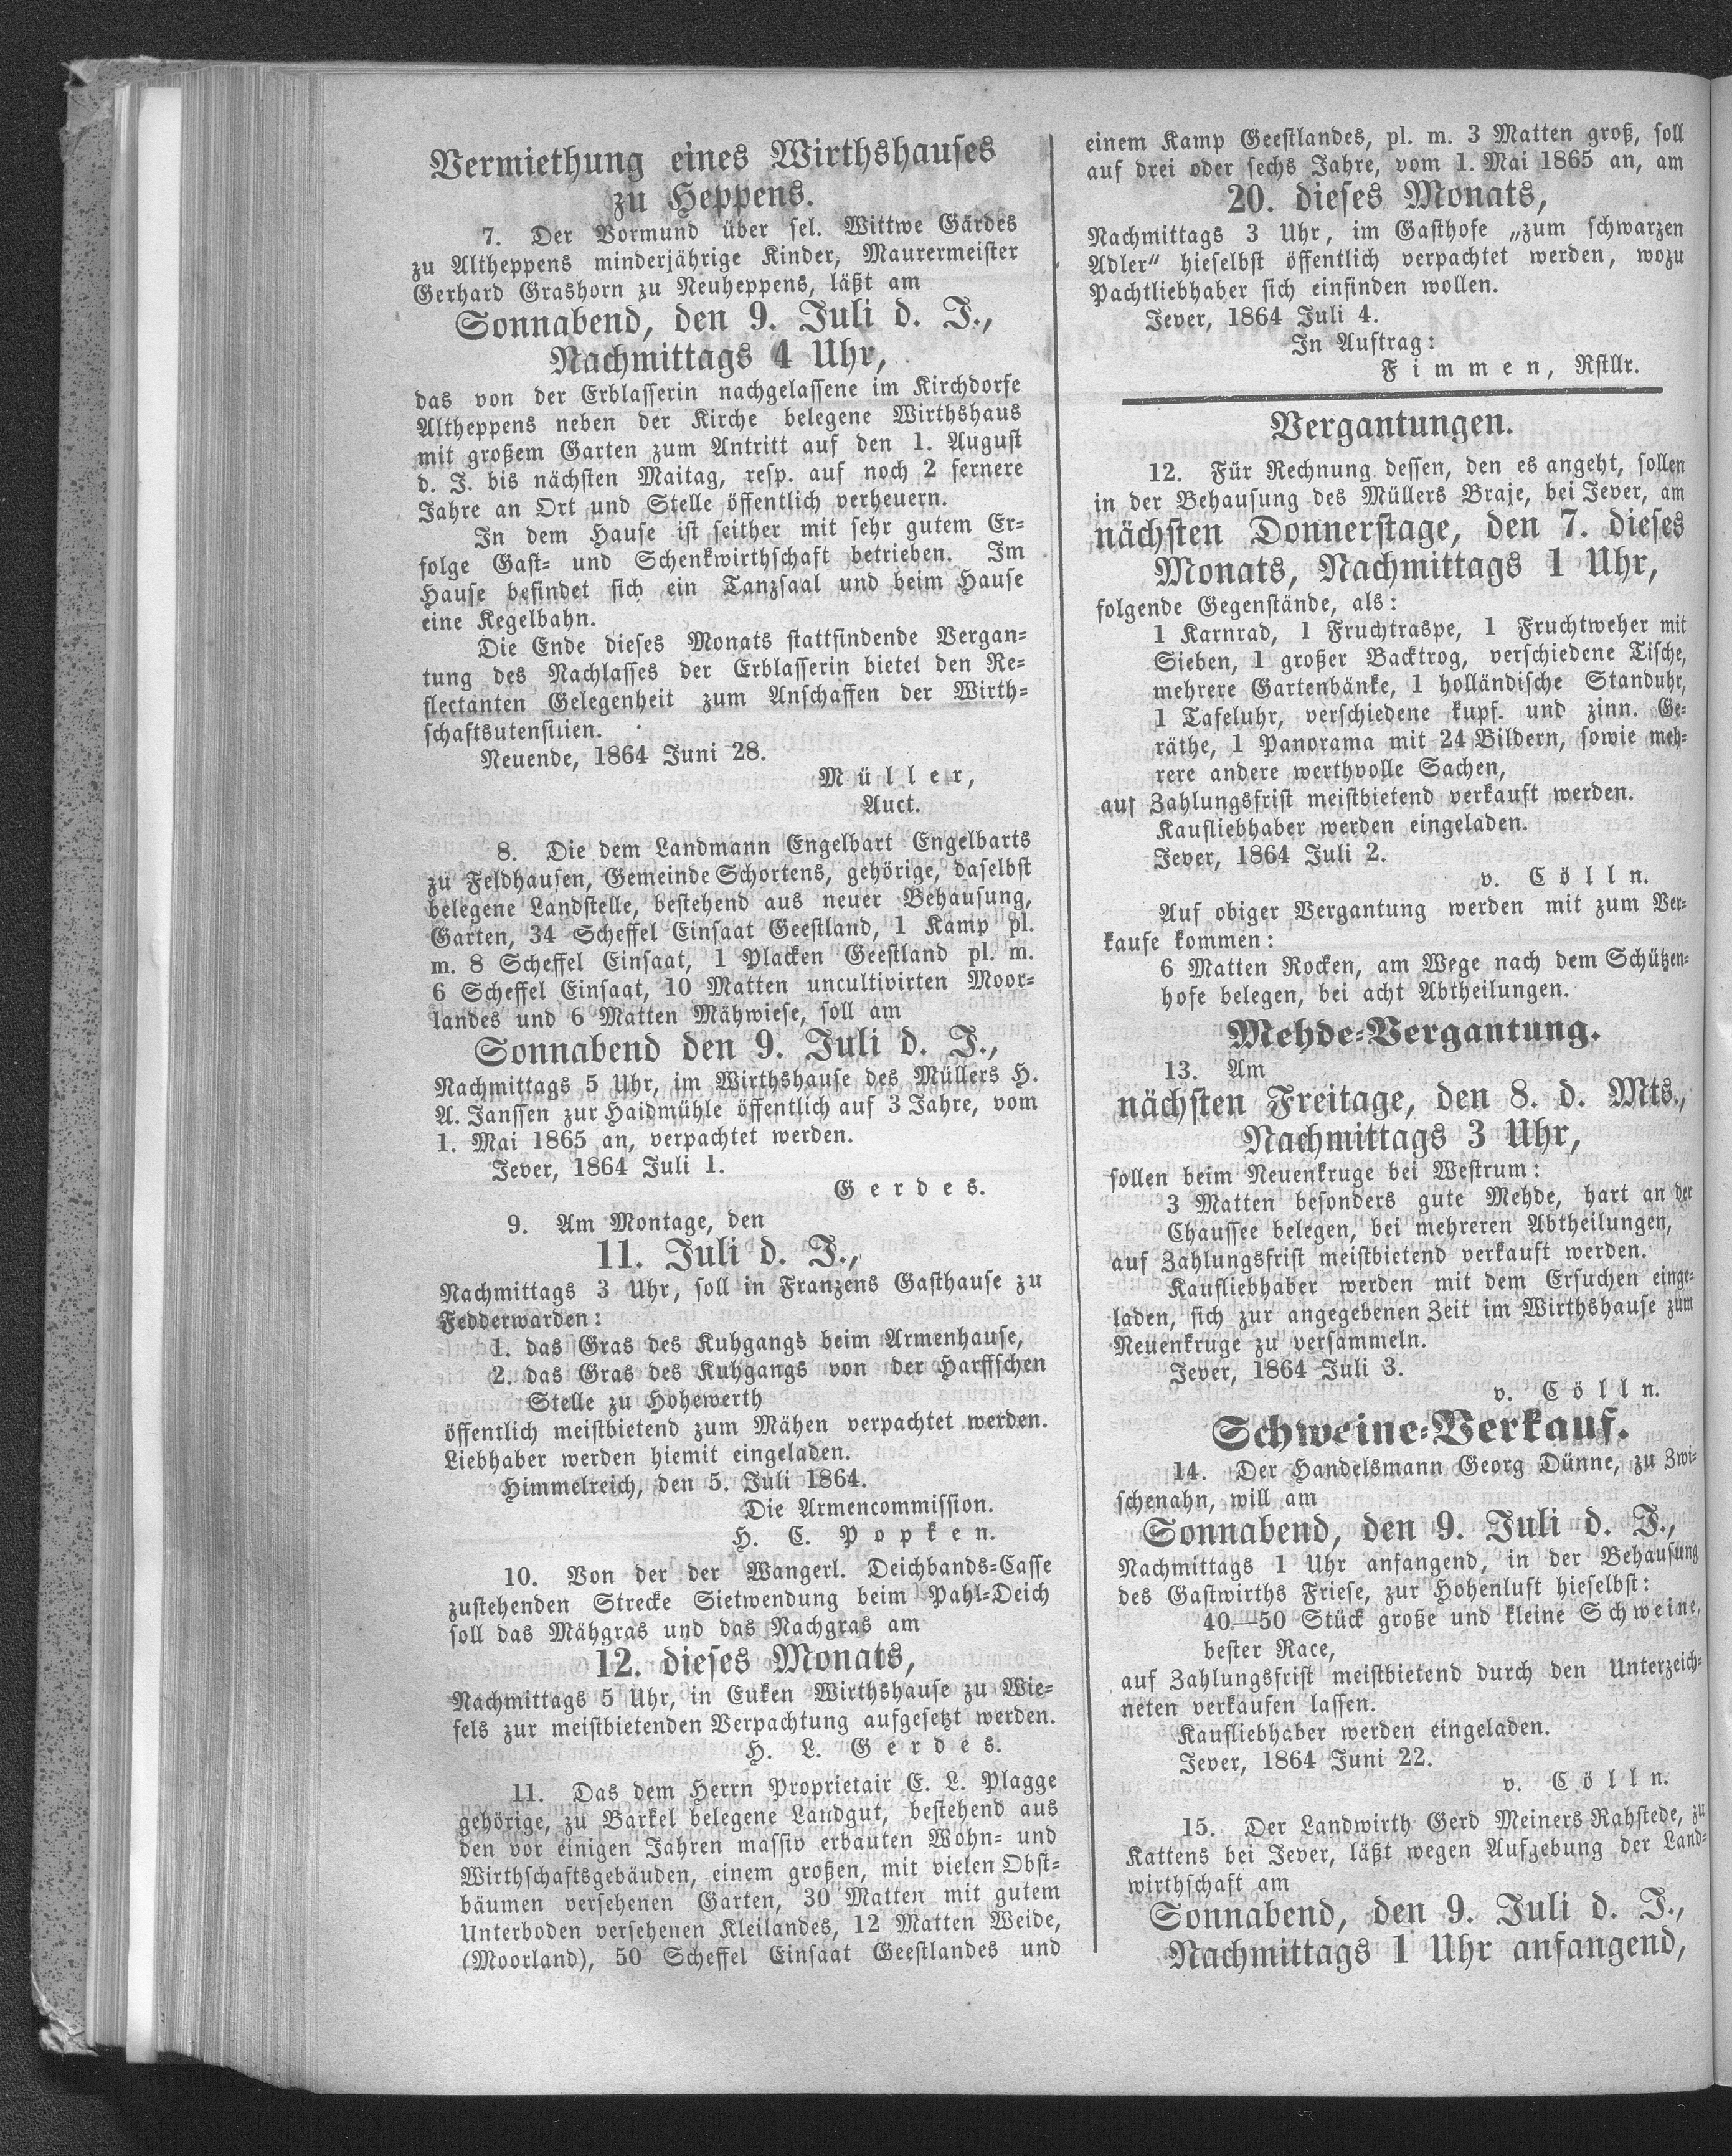 Vermiethung eines Wirthshauses
zu Heppens.
7. Der Vormund über sel. Wittwe Gärdes
zu Altheppens minderjährige Kinder, Maurermeister
Gerhard Grashorn zu Neuheppens, läßt am
Sonnabend, den 9. Juli d. J.,
Nachmittags 4 Uhr,
das von der Erblasserin nachgelassene im Kirchdorfe
Altheppens neben der Kirche belegene Wirthshaus
mit großem Garten zum Antritt auf den 1. August
d. J. bis nächsten Maitag, resp. auf noch 2 fernere
Jahre an Ort und Stelle öffentlich verheuern.
In dem Hause ist seither mit sehr gutem Er-
folge Gast- und Schenkwirthschaft betrieben. Im
Hause befindet sich ein Tanzsaal und beim Hause
eine Kegelbahn.
Die Ende dieses Monats stattfindende Vergan-
tung des Nachlasses der Erblasserin bietet den Re-
flectanten Gelegenheit zum Anschaffen der Wirth-
schaftsutensilien.
Neuende, 1864 Juni 28.
Müller,
Auct.
8. Die dem Landmann Engelbart Engelbarts
zu Feldhausen, Gemeinde Schortens, gehörige, daselbst
belegene Landstelle, bestehend aus neuer Behausung,
Garten, 34 Scheffel Einsaat Geestland, 1 Kamp pl.
m. 8 Scheffel Einsaat, 1 Placken Geestland pl. m.
6 Scheffel Einsaat, 10 Matten uncultivirten Moor-
landes und 6 Matten Mähwiese, soll am
Sonnabend den 9. Juli d. J.,
Nachmittags 5 Uhr, im Wirthshause des Müllers H.
A. Janssen zur Haidmühle öffentlich auf 3 Jahre, vom
1. Mai 1865 an, verpachtet werden.
Jever, 1864 Juli 1.
Gerdes.
9. Am Montage, den
11. Juli d. J.,
Nachmittags 3 Uhr, soll in Franzens Gasthause zu
Fedderwarden:
1. das Gras des Kuhgangs beim Armenhause,
2. das Gras des Kuhgangs von der Harffschen
Stelle zu Hohewerth
öffentlich meistbietend zum Mähen verpachtet werden.
Liebhaber werden hiemit eingeladen.
Himmelreich, den 5. Juli 1864.
Die Armencommission.
H. C. Popken.
10. Von der der Wangerl. Deichbands-Casse
zustehenden Strecke Sietwendung beim Pahl-Deich
soll das Mähgras und das Nachgras am
12. dieses Monats,
Nachmittags 5 Uhr, in Euken Wirthshause zu Wie-
fels zur meistbietenden Verpachtung aufgesetzt werden.
H. L. Gerdes.
11. Das dem Herrn Proprietair E. L. Plagge
gehörige, zu Barkel belegene Landgut, bestehend aus
den vor einigen Jahren massiv erbauten Wohn- und
Wirthschaftsgebäuden, einem großen, mit vielen Obst-
bäumen versehenen Garten, 30 Matten mit gutem
Unterboden versehenen Kleilandes, 12 Matten Weide,
(Moorland), 50 Scheffel Einsaat Geestlandes und
einem Kamp Geestlandes, pl. m. 3 Matten groß, soll
auf drei oder sechs Jahre, vom 1. Mai 1865 an, am
20. dieses Monats,
Nachmittags 3 Uhr, im Gasthofe „zum schwarzen
Adler“ hieselbst öffentlich verpachtet werden, wozu
Pachtliebhaber sich einfinden wollen.
Jever, 1864 Juli 4.
In Auftrag:
Fimmen, Rstllr.
Vergantungen.
12. Für Rechnung dessen, den es angeht, sollen
in der Behausung des Müllers Braje, bei Jever, am
nächsten Donnerstage, den 7. dieses
Monats, Nachmittags 1 Uhr,
folgende Gegenstände, als:
1 Karnrad, 1 Fruchtraspe, 1 Fruchtweher mit
Sieben, 1 großer Backtrog, verschiedene Tische,
mehrere Gartenbänke, 1 holländische Standuhr,
1 Tafeluhr, verschiedene kupf. und zinn. Ge-
räthe, 1 Panorama mit 24 Bildern, sowie meh-
rere andere werthvolle Sachen,
auf Zahlungsfrist meistbietend verkauft werden.
Kaufliebhaber werden eingeladen.
Jever, 1864 Juli 2.
v. Cölln.
Auf obiger Vergantung werden mit zum Ver-
kaufe kommen:
6 Matten Rocken, am Wege nach dem Schützen-
hofe belegen, bei acht Abtheilungen.
Mehde-Vergantung.
13. Am
nächsten Freitage, den 8. d. Mts.,
Nachmittags 3 Uhr,
sollen beim Neuenkruge bei Westrum:
3 Matten besonders gute Mehde, hart an der
Chaussee belegen, bei mehreren Abtheilungen,
auf Zahlungsfrist meistbietend verkauft werden.
Kaufliebhaber werden mit dem Ersuchen einge-
laden, sich zur angegebenen Zeit im Wirthshause zum
Neuenkruge zu versammeln.
Jever, 1864 Juli 3.
v. Cölln.
Schweine-Verkauf.
14. Der Handelsmann Georg Dünne, zu Zwi-
schenahn, will am
Sonnabend, den 9. Juli d. J.,
Nachmittags 1 Uhr anfangend, in der Behausung
des Gastwirths Friese, zur Hohenluft hieselbst:
40—50 Stück große und kleine Schweine,
bester Race,
auf Zahlungsfrist meistbietend durch den Unterzeich-
neten verkaufen lassen.
Kaufliebhaber werden eingeladen.
Jever, 1864 Juni 22.
v. Cölln.
15. Der Landwirth Gerd Meiners Rahstede, zu
Kattens bei Jever, läßt wegen Aufgebung der Land-
wirthschaft am
Sonnabend, den 9. Juli d. J.,
Nachmittags 1 Uhr anfangend,